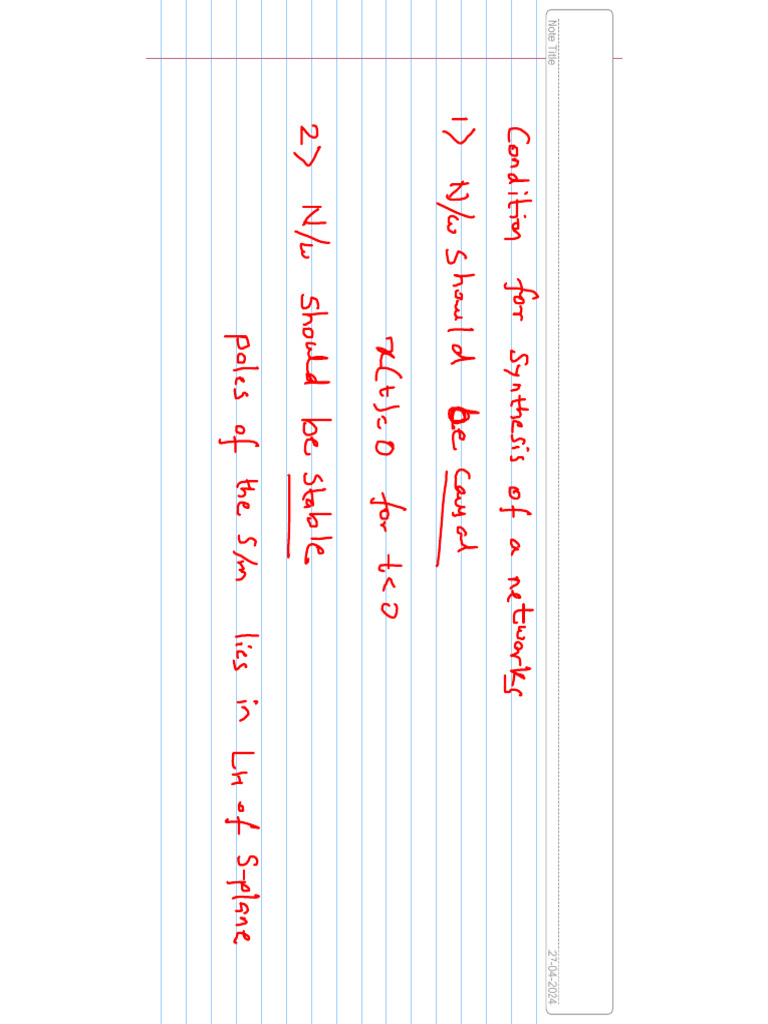 Note Title
27-04-2024
Condition for Synthesis of a networks
1) N/w should be causal
x(t)=0 for t<0
2) N/w should be stable.
poles of the S/m lies in LH of S-plane